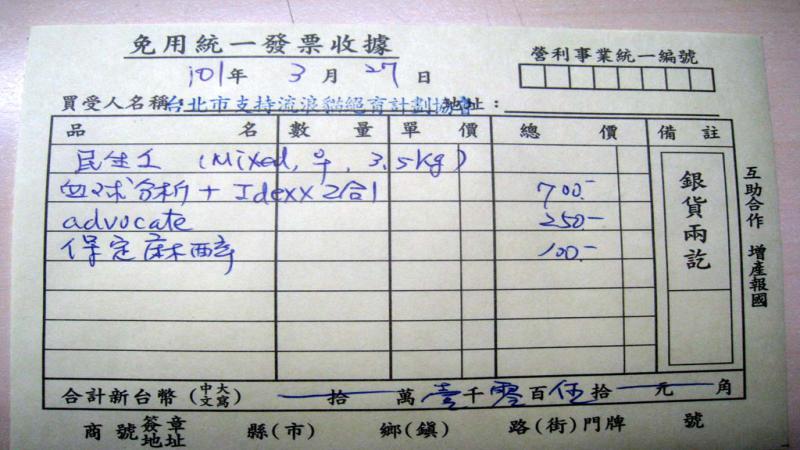 免用統一發票收據
101年 3月 27日
營利事業統一編號
買受人名稱:台北市支持流浪貓絕育計劃協會 地址:
品名 數量 單價 總價 備註
民生工 (Mixed, ♀, 3.5kg)
血球分析+Idexx 2合1 700.-
advocate 250.-
保定麻醉 100.-
銀貨兩訖
互助合作 增產報國
合計新台幣(中文大寫) 拾 萬 壹 千 零 百 伍 拾 元 角
商號簽章地址 縣(市) 鄉(鎮) 路(街)門牌 號